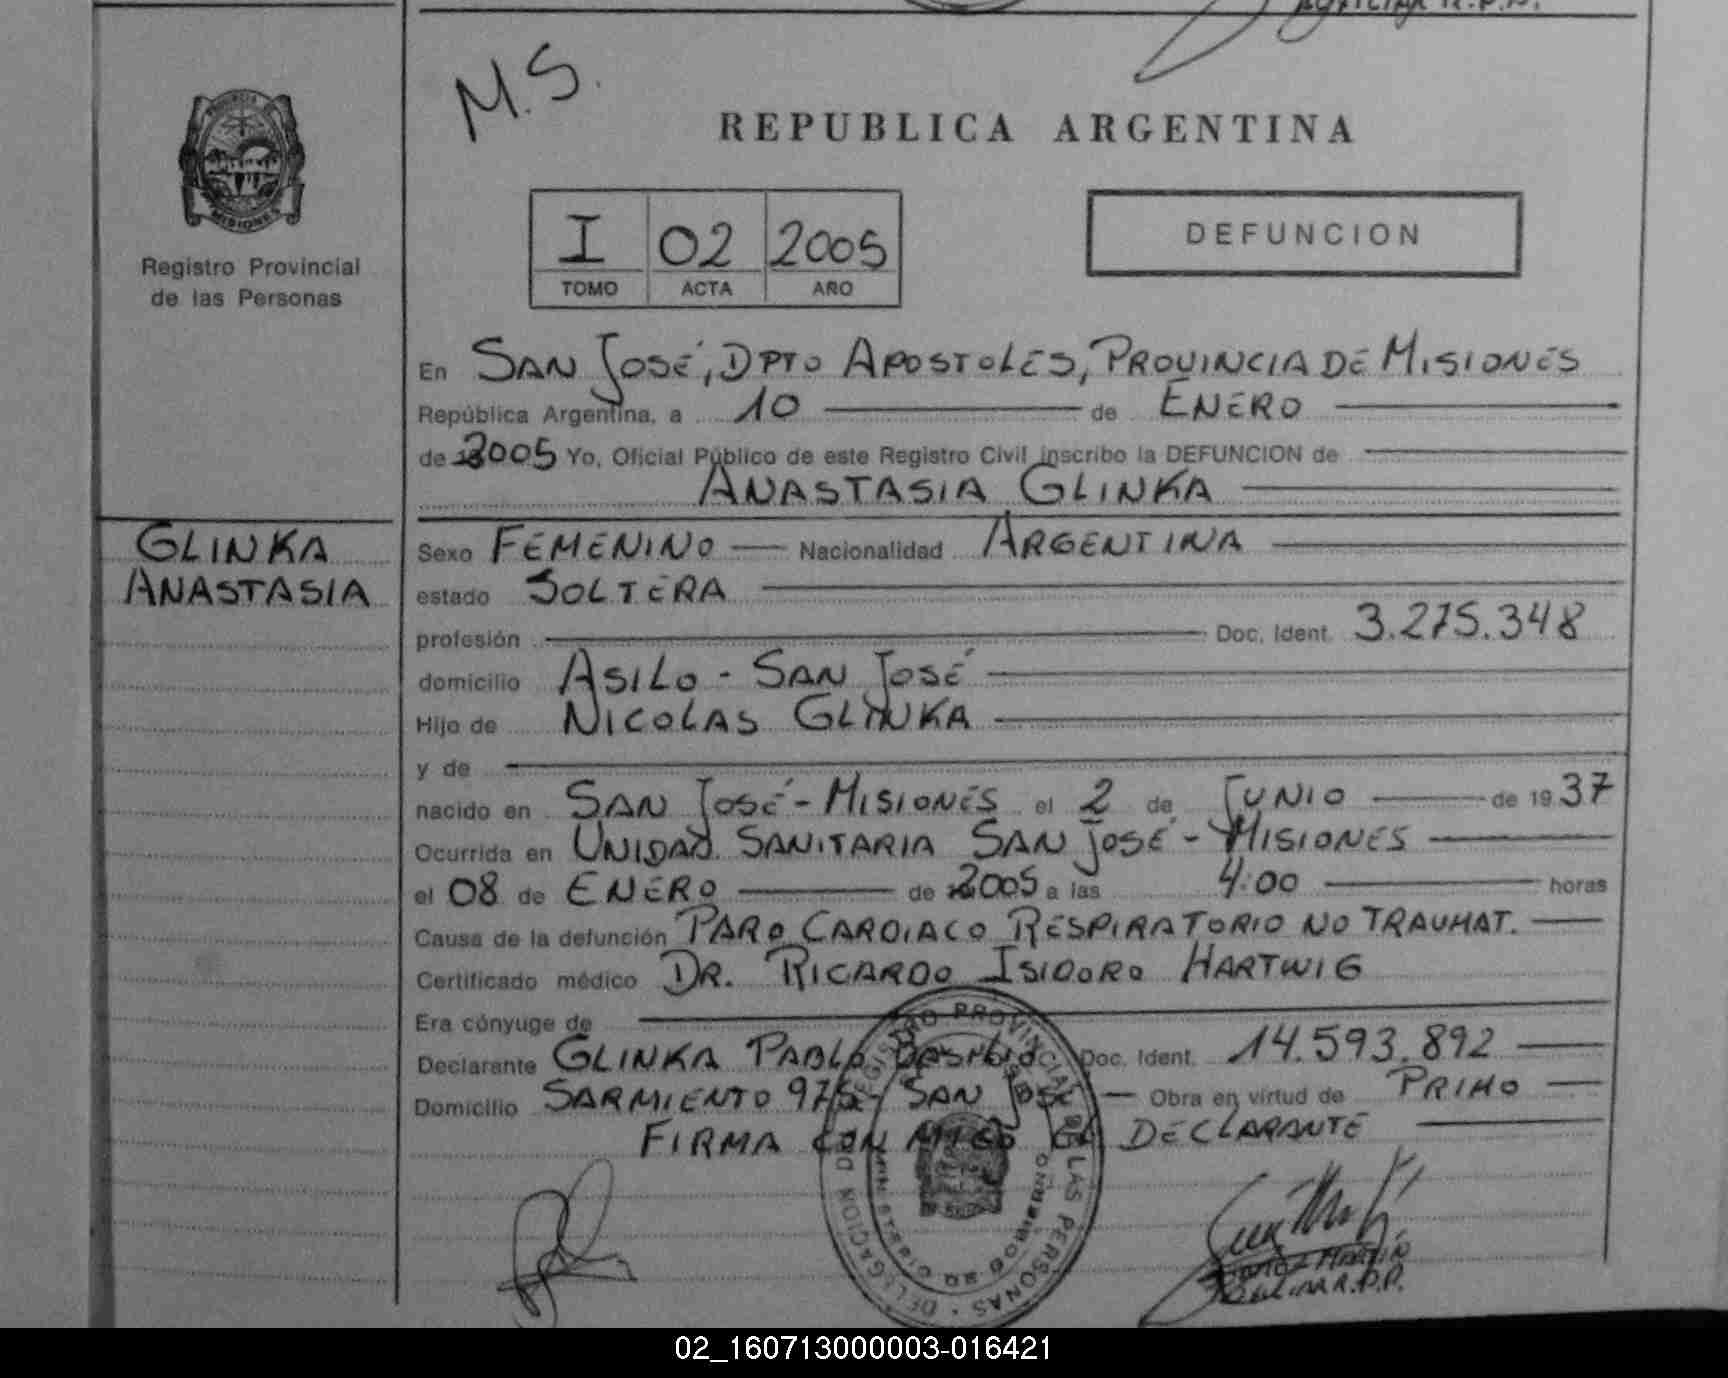 AUXILIAR R.P.P.
M.S.
PROVINCIA
MISIONES
REPUBLICA ARGENTINA
I 02 2005
TOMO ACTA AÑO
DEFUNCION
Registro Provincial
de las Personas
En SAN JOSÉ, DPTO APOSTOLES, PROVINCIA DE MISIONES
República Argentina, a 10 de ENERO
de 2005 Yo, Oficial Público de este Registro Civil inscribo la DEFUNCION de
ANASTASIA GLINKA
GLINKA
ANASTASIA
Sexo FEMENINO Nacionalidad ARGENTINA
estado SOLTERA
profesión Doc. Ident. 3.275.348
domicilio ASILO - SAN JOSÉ
Hijo de NICOLAS GLINKA
y de
nacido en SAN JOSÉ - MISIONES el 2 de JUNIO de 1937
Ocurrida en UNIDAD SANITARIA SAN JOSÉ - MISIONES
el 08 de ENERO de 2005 a las 4:00 horas
Causa de la defunción PARO CARDIACO RESPIRATORIO NO TRAUMAT.
Certificado médico DR. RICARDO ISIDORO HARTWIG
Era cónyuge de
Declarante GLINKA PABLO Doc. Ident. 14.593.892
Domicilio SARMIENTO 975 - SAN JOSÉ Obra en virtud de PRIMO
FIRMA CON MIGO EL DECLARANTE
REGISTRO PROVINCIAL DE LAS PERSONAS · DELEGACION
MARTIN
R.P.P.
02_160713000003-016421